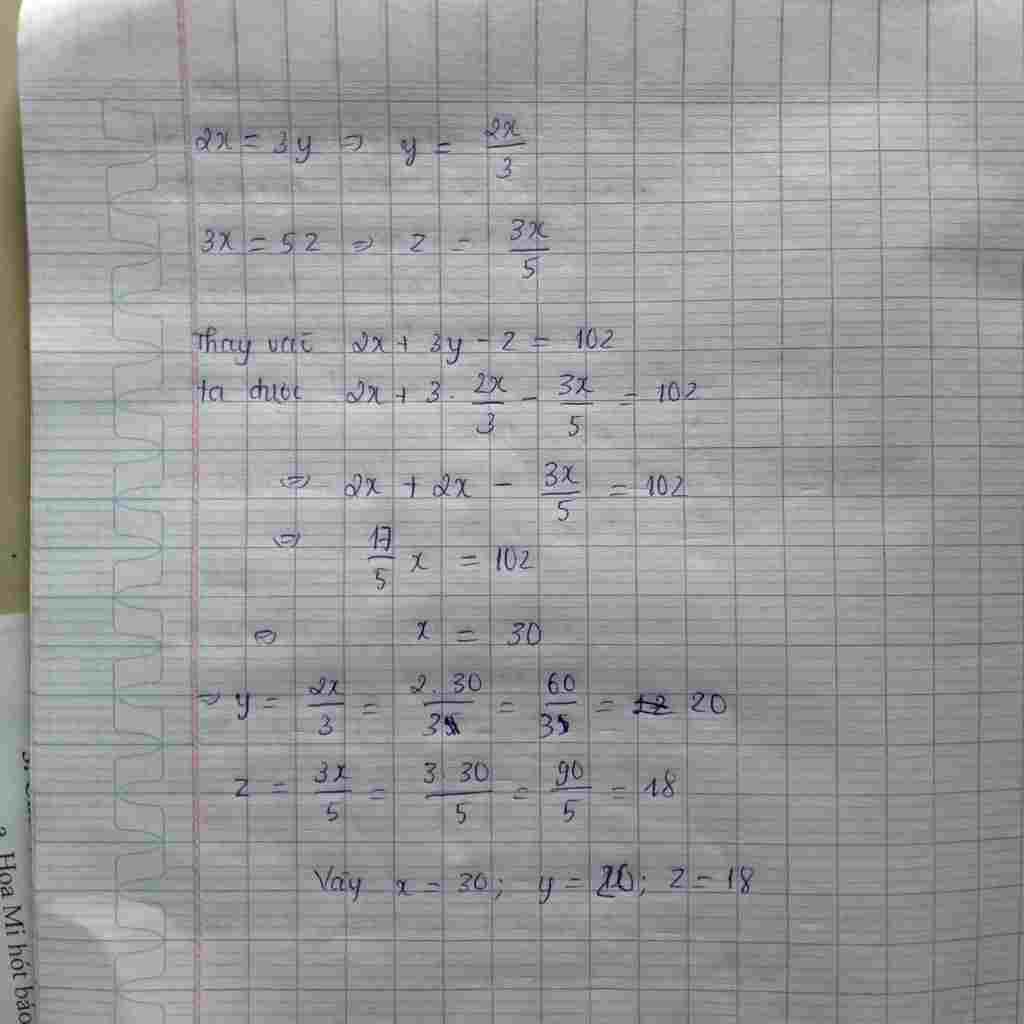 2x = 3y => y = 2x/3
3x = 5z => z = 3x/5
Thay vào 2x + 3y - z = 102
ta được 2x + 3. 2x/3 - 3x/5 = 102
=> 2x + 2x - 3x/5 = 102
=> 17/5 x = 102
=> x = 30
=> y = 2x/3 = 2.30/3 = 60/3 = 20
z = 3x/5 = 3.30/5 = 90/5 = 18
Vậy x = 30; y = 20; z = 18
Hoạ Mi hót báo